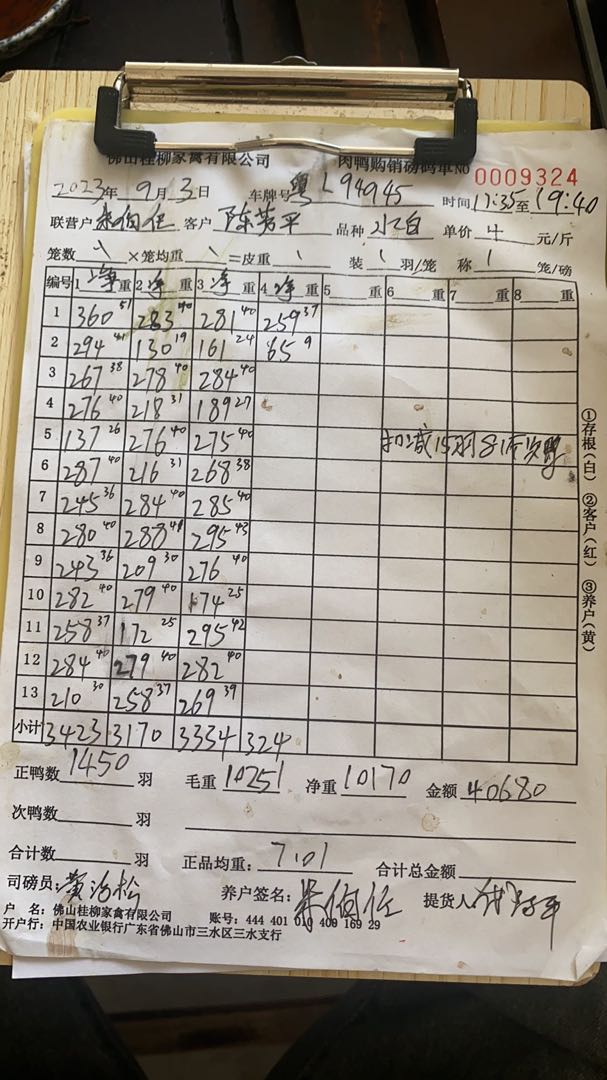 佛山桂柳家禽有限公司 肉鸭购销磅码单 NO 0009324
2023年 9月 3日 车牌号 粤L94945 时间 17:35至19:40
联营户 客户 陈芳平 品种 水白 单价 4 元/斤
笼数 \ ×笼均重 \ =皮重 \ 装 \ 羽/笼 称 \ 笼/磅
编号 1 净重 2 净重 3 净重 4 净重 5 重 6 重 7 重 8 重
1 360 51 283 40 281 40 259 37
2 294 41 130 19 161 24 65 9
3 267 38 278 40 284 40
4 276 40 218 31 189 27
5 137 26 276 40 275 40 扣减15羽81斤
6 287 40 216 31 268 38
7 245 36 284 40 285 40
8 280 40 288 41 295 43
9 243 36 209 30 276 40
10 282 40 279 40 174 25
11 258 37 172 25 295 42
12 284 40 279 40 282 40
13 210 30 258 37 269 39
小计 3423 3170 3334 324
正鸭数 1450 羽 毛重 10251 净重 10170 金额 40680
次鸭数 羽
合计数 羽 正品均重: 7.01 合计总金额
司磅员: 养户签名: 提货人
户 名: 佛山桂柳家禽有限公司 账号: 444 401 010 400 169 29
开户行: 中国农业银行广东省佛山市三水区三水支行
①存根(白) ②客户(红) ③养户(黄)